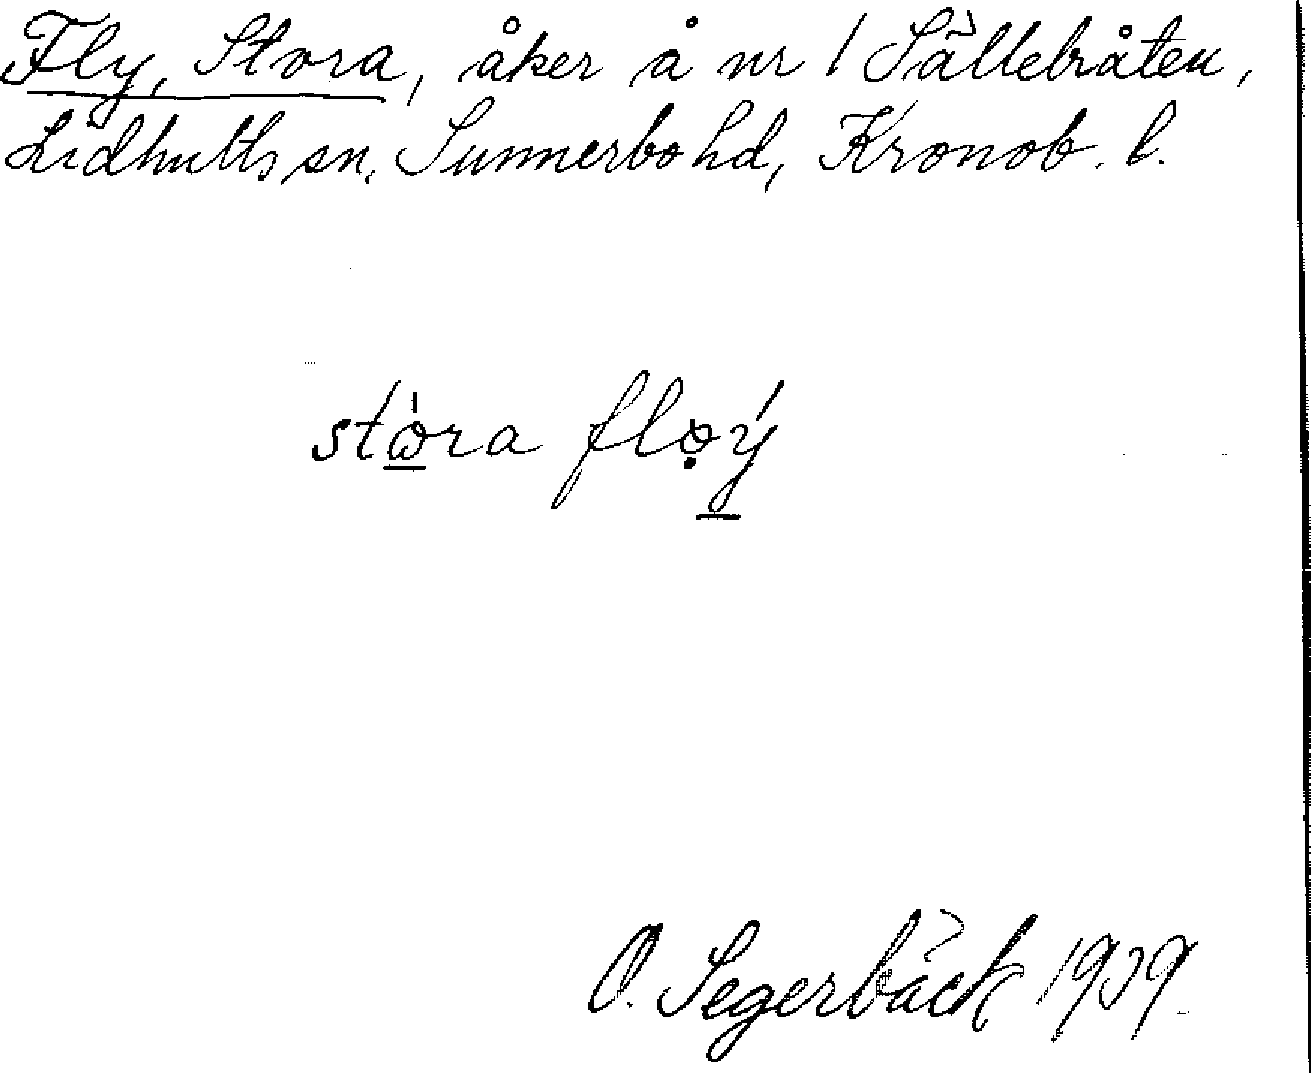 Fly, Stora, åker å nr 1 Sällebråten,
Lidhults sn. Sunnerbo hd, Kronob. l.
stωra flǫy
O. Segerbäck 1939.